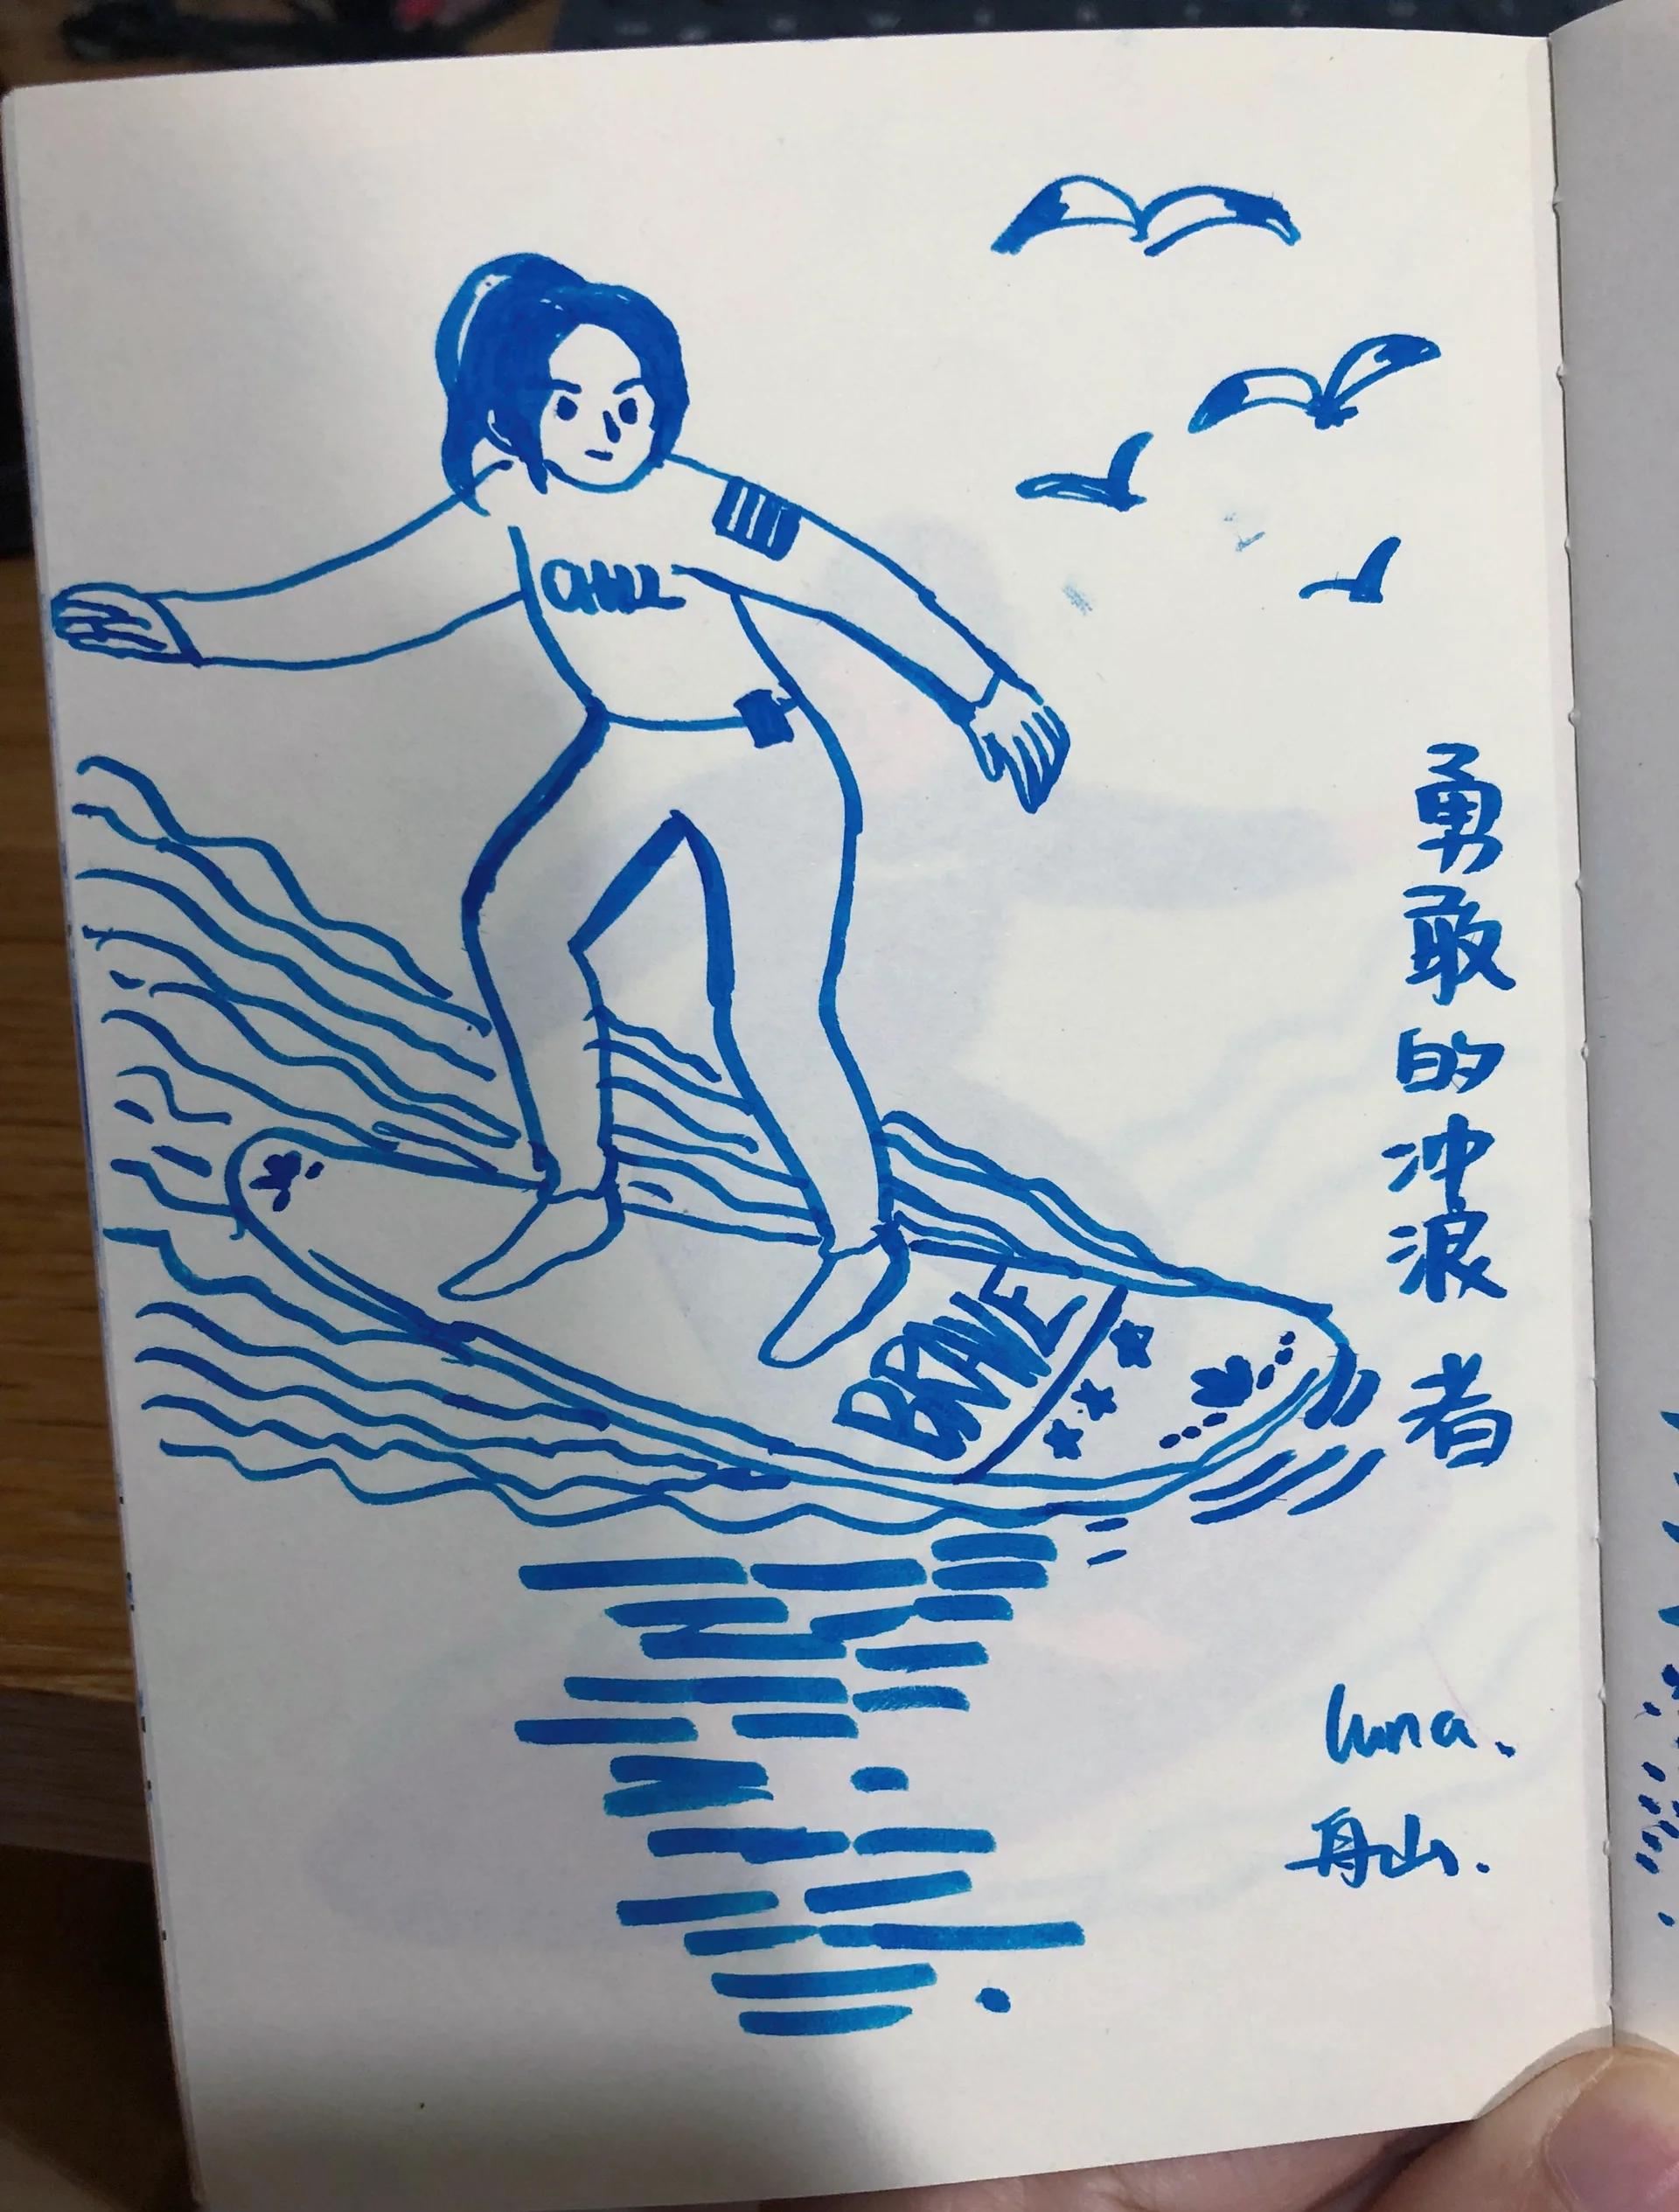 CHILL
勇敢的冲浪者
BRAVE
luna.
舟山.